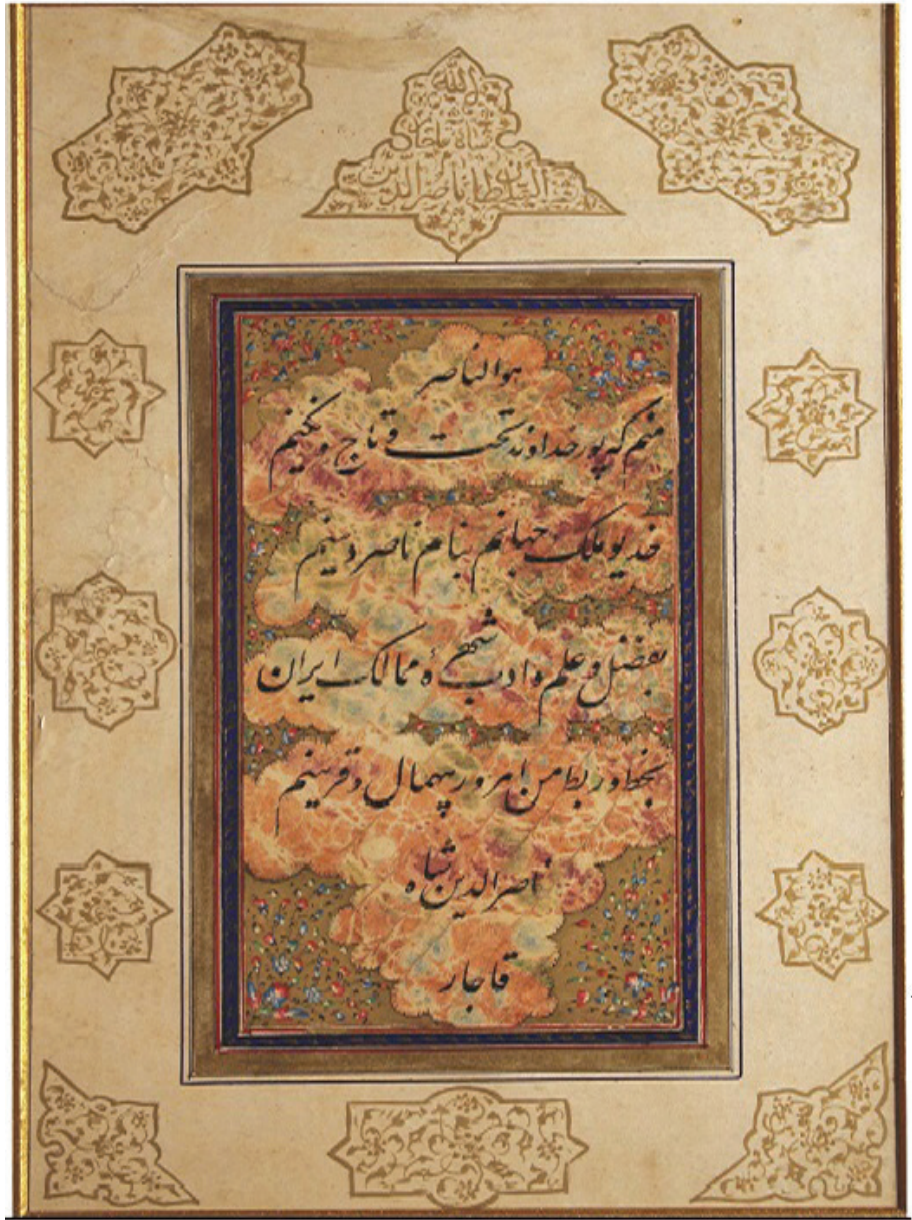 الله
شاه قاجار
السلطان ناصرالدین
هوالناصر
منم که پور خداوند تخت و تاج و نگینم
خدیو ملک جهانم بنام ناصر دینم
بفضل و علم و ادب شهرهٔ ممالک ایران
بخط و ربط من امروز بیهمال و قرینم
ناصرالدین شاه
قاجار